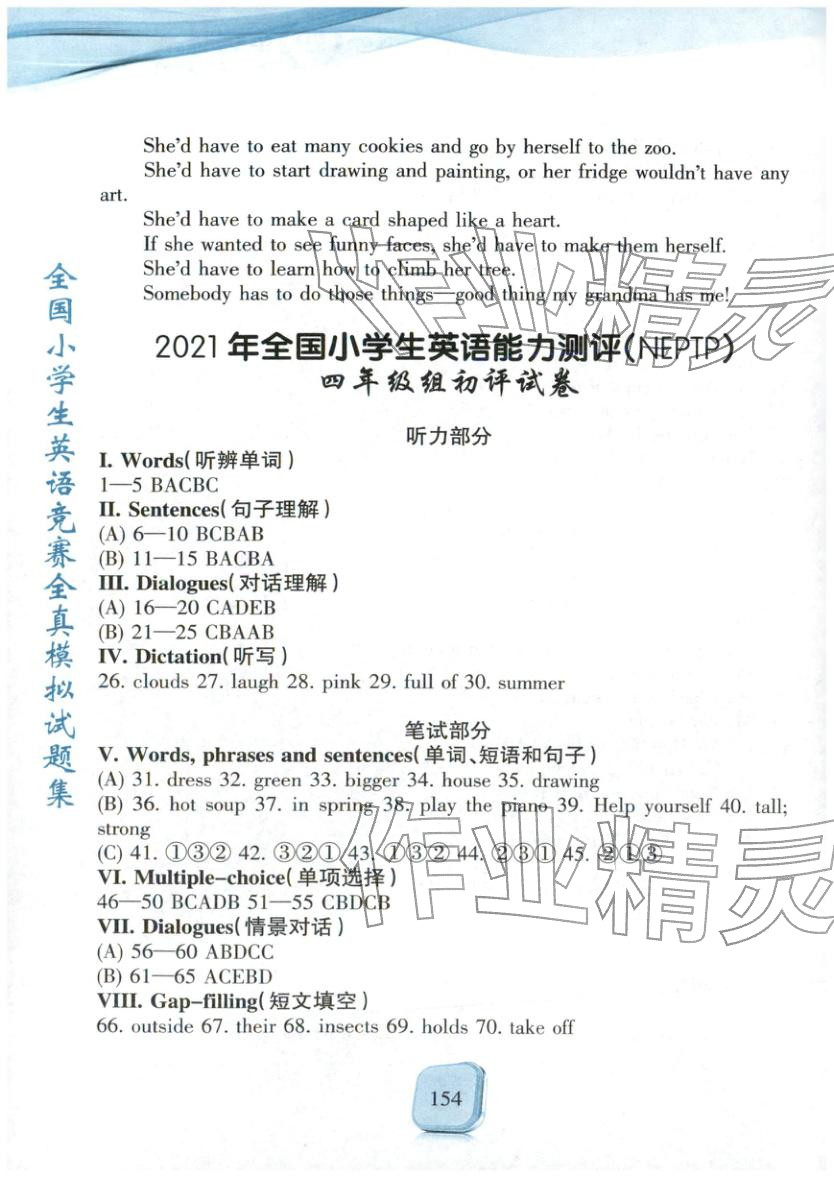 She'd have to eat many cookies and go by herself to the zoo.
She'd have to start drawing and painting, or her fridge wouldn't have any
art.
She'd have to make a card shaped like a heart.
If she wanted to see funny faces, she'd have to make them herself.
She'd have to learn how to climb her tree.
Somebody has to do those things—good thing my grandma has me!
全国小学生英语竞赛全真模拟试题集
2021年全国小学生英语能力测评(NEPTP)
四年级组初评试卷
听力部分
I. Words(听辨单词)
1—5 BACBC
II. Sentences(句子理解)
(A) 6—10 BCBAB
(B) 11—15 BACBA
III. Dialogues(对话理解)
(A) 16—20 CADEB
(B) 21—25 CBAAB
IV. Dictation(听写)
26. clouds 27. laugh 28. pink 29. full of 30. summer
笔试部分
V. Words, phrases and sentences(单词、短语和句子)
(A) 31. dress 32. green 33. bigger 34. house 35. drawing
(B) 36. hot soup 37. in spring 38. play the piano 39. Help yourself 40. tall;
strong
(C) 41. ①③② 42. ③②① 43. ①③② 44. ②③① 45. ②①③
VI. Multiple-choice(单项选择)
46—50 BCADB 51—55 CBDCB
VII. Dialogues(情景对话)
(A) 56—60 ABDCC
(B) 61—65 ACEBD
VIII. Gap-filling(短文填空)
66. outside 67. their 68. insects 69. holds 70. take off
154
作业精灵
作业精灵